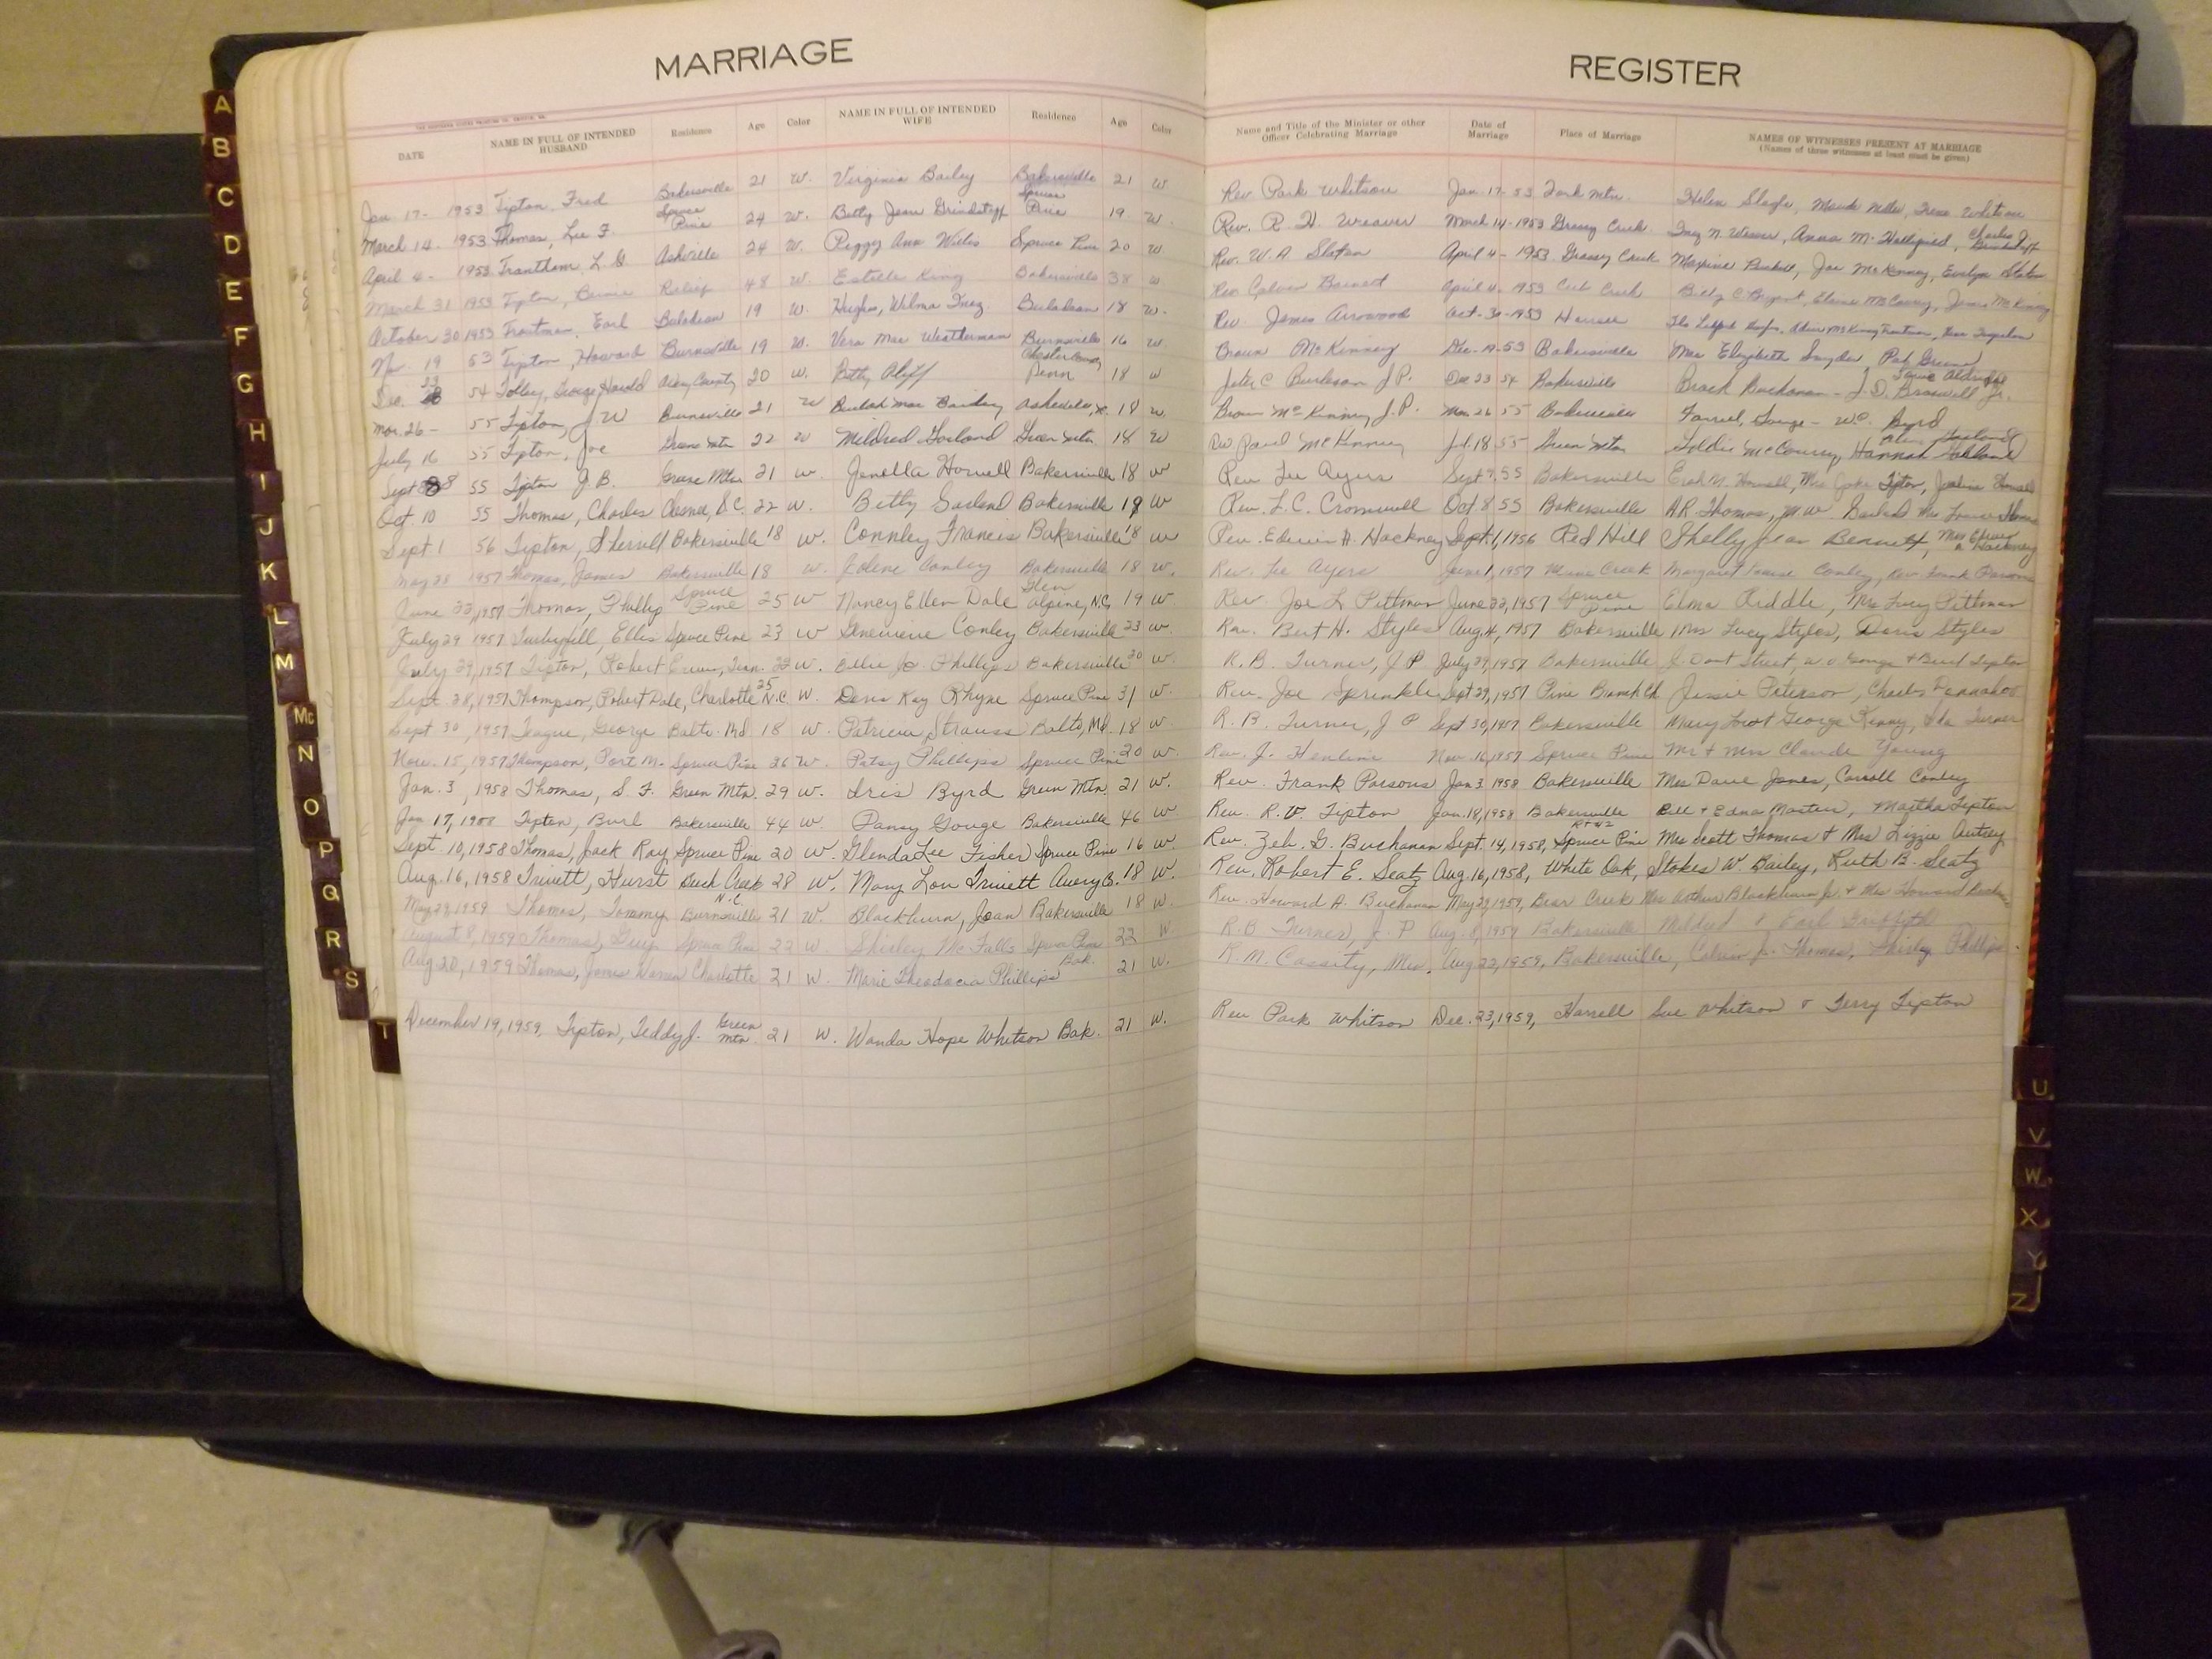 MARRIAGE
REGISTER
DATE NAME IN FULL OF INTENDED HUSBAND Residence Age Color NAME IN FULL OF INTENDED WIFE Residence Age Color Name and Title of the Minister or other Officer Celebrating Marriage Date of Marriage Place of Marriage NAMES OF WITNESSES PRESENT AT MARRIAGE (Names of three witnesses at least must be given)
Jan. 17- 1953 Tipton, Fred Bakersville 21 W. Virginia Bailey Bakersville 21 W Rev Park Whitson Jan-17-53 Fork Mtn. Helen Slagle, Maude
March 14- 1953 Thomas, Lee F. Spruce Pine 24 W. Betty Jean Grindstaff Spruce Pine 19 W. Rev. R. H. Weaver March 14-1953 Grassy Creek Inez N. Weaver, Anna M. Charles J. Grindstaff
April 4- 1953 Trantham, L. G Asheville 24 W. Peggy Ann Willis Spruce Pine 20 W Rev. W. A Slaten April 4-1953 Grassy Creek Maxine Joe McKinney, Evelyn
March 31 1953 Tipton, Relief 48 W. Estelle King Bakersville 38 W Rev Calvin Barnett April 4-1953 Cub Creek Billy C Bryant, Elaine McCourry, James McKinney
October 30 1953 Troutman, Earl Buladean 19 W. Hughes, Wilma Inez Buladean 18 W. Rev James Arrowood Oct-30-1953
Nov. 19 53 Tipton, Howard Burnsville 19 W. Vera Mae Westherman Burnsville 16 W Brown McKinney 53 Bakersville Mrs Elizabeth Snyder, Pat Greene
Dec. 23 54 Tolley, George Harold Avery County 20 W. Betty Aliff Chester County Penn 18 W Jeter C Burleson J.P. Dec 23 54 Bakersville Brack Buchanan - J.D. Braswell Jr.
Mar. 26- 55 Tipton, J W Burnsville 21 W Beulah Mae Bailey 18 W Brown McKinney J.P. Mar. 26 55 Bakersville Farrell Gouge - W.C. Byrd
July 16 55 Tipton, Joe Green Mtn 22 W Mildred Garland Green Mtn 18 W Rev Paul McKinney Jul. 18 55 Green Mtn McCourry, Hannah
Sept 8 55 Tipton J.B. Green Mtn 21 W. Jenella Howell Bakersville 18 W Rev Lee Ayers Sept 9 55 Bakersville
Oct. 10 55 Thomas, Charles Chesnee, S.C. 22 W. Betty Garland Bakersville 19 W Rev. L. C. Cromwell Oct 8 55 Bakersville A.R. Thomas, M.W. Garland
Sept. 1 56 Tipton, Sherrill Bakersville 18 W. Connley Francis Bakersville 18 W Rev. Edwin A. Hackney Sept. 1, 1956 Red Hill Shelby Jean Bennett, Mrs Edwin A Hackney
May 28 1957 Thomas, James Bakersville 18 W. Jolene Conley Bakersville 18 W. Rev. Lee Ayers June 1, 1957 Mine Creek Margaret Louise Conley, Rev. Frank Parsons
June 22, 1957 Thomas, Phillip Spruce Pine 25 W Nancy Ellen Dale Glen Alpine, N.C. 19 W Rev. Joe L. Pittman June 22, 1957 Spruce Pine Elma Riddle, Mrs Lucy Pittman
July 29 1957 Turbyfill, Ellis Spruce Pine 23 W Genevieve Conley Bakersville 23 W. Rev. Bert H. Styles Aug. 4, 1957 Bakersville Mrs Lucy Styles, Doris Styles
July 29, 1957 Tipton, Robert Erwin, Tenn. 22 W. Billie Jo Phillips Bakersville 20 W. R. B. Turner, J P July 29, 1957 Bakersville
Sept. 28, 1957 Thompson, Robert Dale, Charlotte N.C. 25 W. Doris Kay Rhyne Spruce Pine 31 W. Rev. Joe Sprinkle Sept 29, 1957 Pine Branch Ch Jessie Peterson, Charles
Sept 30, 1957 Teague, George Balto. Md 18 W. Patricia Strauss Balto, Md. 18 W. R. B. Turner, J P Sept 30, 1957 Bakersville Mary Lou & George Kenny, Ida Turner
Nov. 15, 1957 Thompson, Port M. Spruce Pine 26 W. Patsy Phillips Spruce Pine 20 W. Rev. J. Henline Nov. 16, 1957 Spruce Pine Mr & Mrs Claude Young
Jan. 3, 1958 Thomas, S. F. Green Mtn. 29 W. Iris Byrd Green Mtn 21 W. Rev. Frank Parsons Jan 3 1958 Bakersville Mrs Dave Jones, Carroll Conley
Jan 17, Tipton, Burl Bakersville 44 W. Pansy Gouge Bakersville 46 W. Rev. R. V. Tipton Jan. 18, 1958 Bakersville Bill & Edna Masters, Martha Tipton
Sept. 10, 1958 Thomas, Jack Ray Spruce Pine 20 W. Glenda Lee Fisher Spruce Pine 16 W. Rev. Zeb. G. Buchanan Sept. 14, 1958, Rt #2 Spruce Pine Mrs Scott Thomas & Mrs Lizzie Autrey
Aug. 16, 1958 Trivett, Hurst Beech Creek N.C. 28 W. Mary Lou Trivett Avery Co. 18 W. Rev. Robert E. Seatz Aug. 16, 1958, White Oak, Stokes W. Bailey, Ruth B. Seatz
May 29, 1959 Thomas, Tommy Burnsville 21 W. Blackburn, Joan Bakersville 18 W. Rev. Howard A. Buchanan May 29, 1959, Bear Creek Mrs Arthur Blackburn Jr. & Mrs Howard
August 8, 1959 Thomas, Guy Spruce Pine 22 W. Shirley McFalls Spruce Pine 22 W R. B Turner, J. P Aug. 8, 1959 Bakersville Mildred & Earl Griffith
Aug 20, 1959 Thomas, James Warren Charlotte 21 W. Marie Theodocia Phillips Bak. 21 W. R. M. Cassity, Min. Aug. 22, 1959, Bakersville, Calvin Jr. Thomas, Shirley Phillips
December 19, 1959, Tipton, Teddy J. Green Mtn. 21 W. Wanda Hope Whitson Bak. 21 W. Rev Park Whitson Dec. 23, 1959, Harrell Sue Whitson & Terry Tipton
A
B
C
D
E
F
G
H
I
J
K
L
M
Mc
N
O
P
Q
R
S
T
U
V
W
X
Y
Z